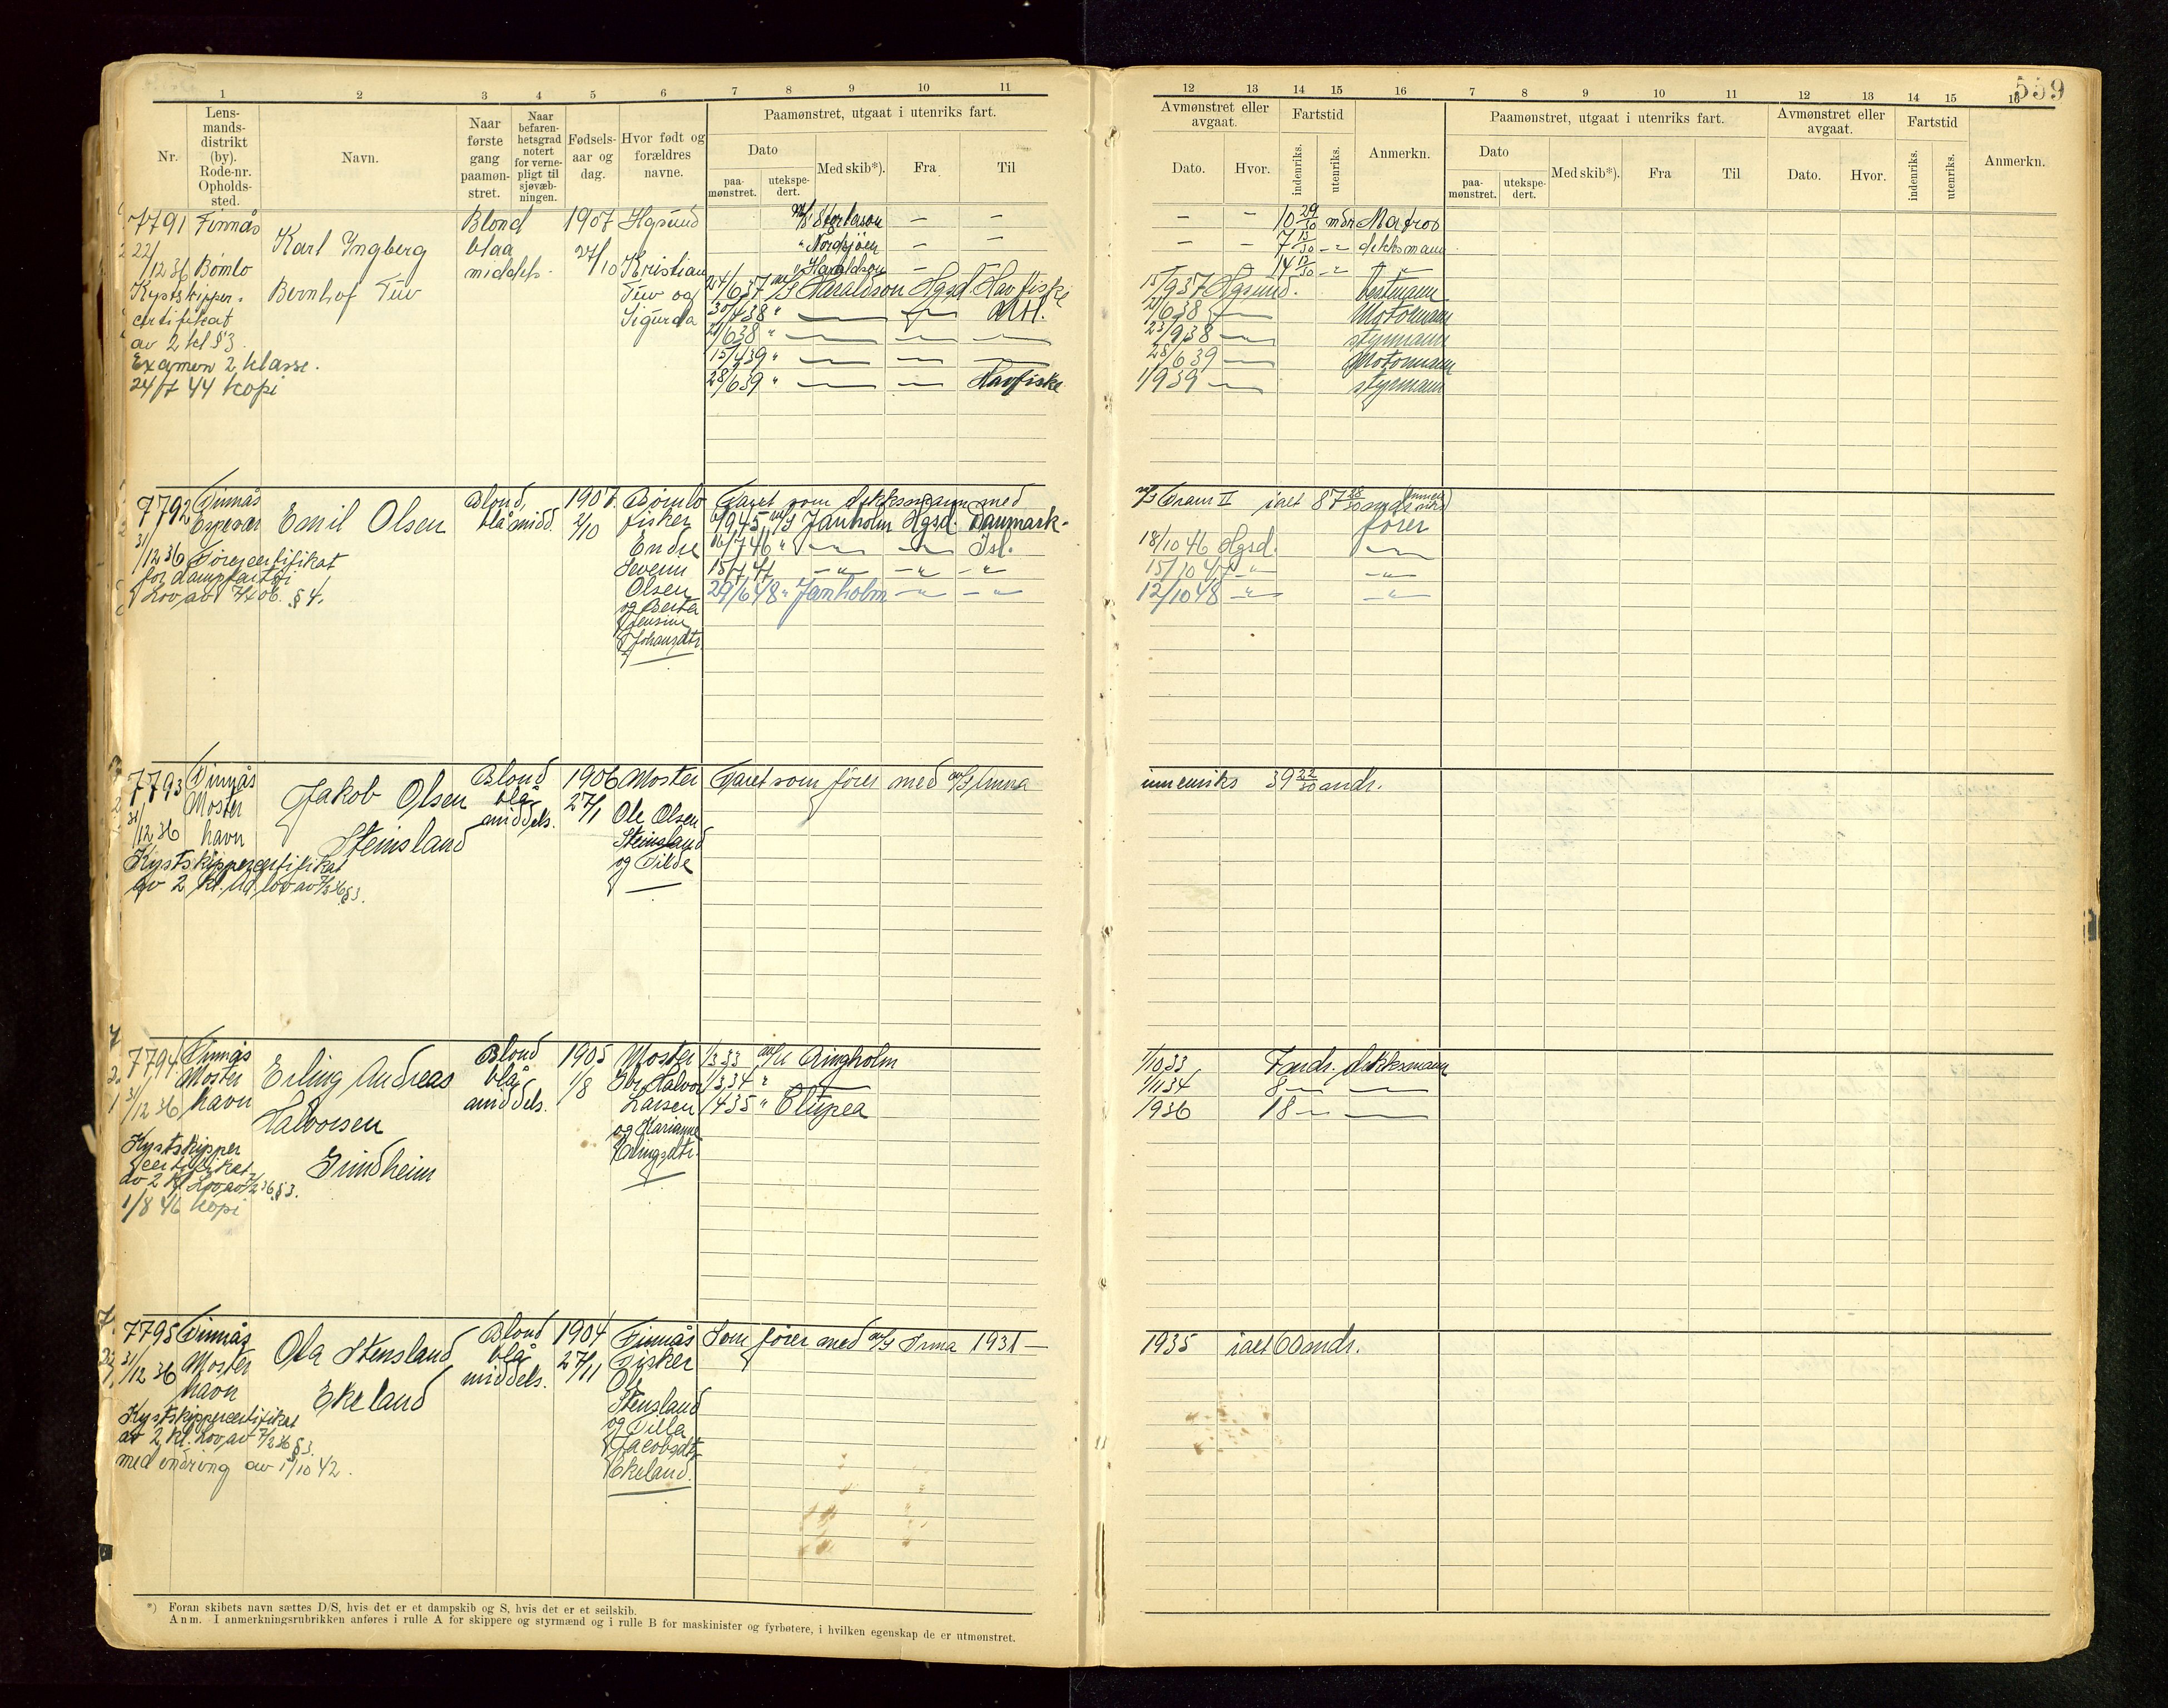 559
1 2 3 4 5 6 7 8 9 10 11
12 13 14 15 16 7 8 9 10 11 12 13 14 15 16
Nr.
Lens-
mands-
distrikt
(by).
Rode-nr.
Opholds-
sted.
Navn.
Naar
første
gang
paamøn-
stret.
Naar
befaren-
hetsgrad
notert
for verne-
pligt til
sjøvæb-
ningen.
Fødsels-
aar og
dag.
Hvor født og
forældres
navne.
Paamønstret, utgaat i utenriks fart.
Dato
paa-
mønstret.
utekspe-
dert.
Med skib*).
Fra
Til
Avmønstret eller
avgaat.
Dato.
Hvor.
Fartstid
indenriks.
utenriks.
Anmerkn.
Paamønstret, utgaat i utenriks fart.
Dato
paa-
mønstret.
utekspe-
dert.
Med skib*).
Fra
Til
Avmønstret eller
avgaat.
Dato.
Hvor.
Fartstid
indenriks.
utenriks.
Anmerkn.
7791 Finnås
22/12 36 Bømlo
Kystskipper-
certifikat
av 2 kl §3.
Examen 2 klasse.
24/7 44 kopi
Karl Ingberg
Bernhof Tuv
Blond
blaa
middels
1907
27/10
Hgsund
Kristian
Tuv og
Sigurda
M/S — — — — 10 29/30 mdr Matros
" Nordsjøen — — — — 7 13/30 -"- dekksmann
" Haraldson — — 14 12/30 -"-
24/6 37 M/S Haraldson Hgsd. Havfiske 15/9 37 Hgsund. bestmann
30/4 38 " 2/6 38 Motormann
21/6 38 " 23/9 38 styrmann
15/4 39 " 28/6 39 Motormann
28/6 39 " Havfiske 1/9 39 styrmann
7792 Finnås
Espevær
31/12 36 Førercertifikat
for dampfartøi
Lov av 7/4 06. § 4.
Emil Olsen
Blond,
blå midd.
1907
2/10
Bømlo
fisker
Endre
Severin
Olsen
og Berta
Jensine
Johansdtr.
Faret som dekksmann med M/S Fram II ialt 87 28/30 mndr
9 45 M/S Janholm Hgsd. Danmark- fører
16/7 46 " Isl. 18/10 46 Hgsd.
15/7 47 -"- -"- -"- 15/10 47 -"- -"-
29/6 48 " Janholm -"- -"- 12/10 48 -"- -"-
7793 Finnås
Moster
31/12 36 havn
Kystskippercertifikat
av 2 kl. lov av 7/2 36 § 3.
Jakob Olsen
Steinsland
Blond
blå
middels.
1906
27/1
Moster
Ole Olsen
Steinsland
og Tilde
Faret som fører med M/S innenriks 39 22/30 mndr.
7794. Finnås
Moster
31/12 36 havn
Kystskipper
certifikat
av 2 kl. Lov av 7/2 36 § 3.
1/8 46 kopi
Erling Andreas
Halvorsen
Grindheim
Blond
blå
middels.
1905
1/8
Moster
Halvor
Larsen
og Marianne
Erlingsdtr.
1/3 33 M/K Ringholm 1/10 33 7 mdr. dekksmann
1/3 34 " 1/11 34 8
1/4 35 " Clupea 1936 18
7795 Finnås
Moster
31/12 36 havn
Kystskippercertifikat
av 2 kl. Lov av 7/2 36 § 3.
med endring av 1/10 42.
Ola Stensland
Ekeland
Blond
blå
middels.
1904
27/11
Finnås
Fisker
Ole
Stensland
og Tilla
Jacobsdtr
Ekeland.
Som fører med M/S Irma 1931 — 1935 ialt 60 mndr.
*) Foran skibets navn sættes D/S, hvis det er et dampskib og S, hvis det er et seilskib.
Anm. I anmerkningsrubrikken anføres i rulle A for skippere og styrmænd og i rulle B for maskinister og fyrbøtere, i hvilken egenskap de er utmønstret.